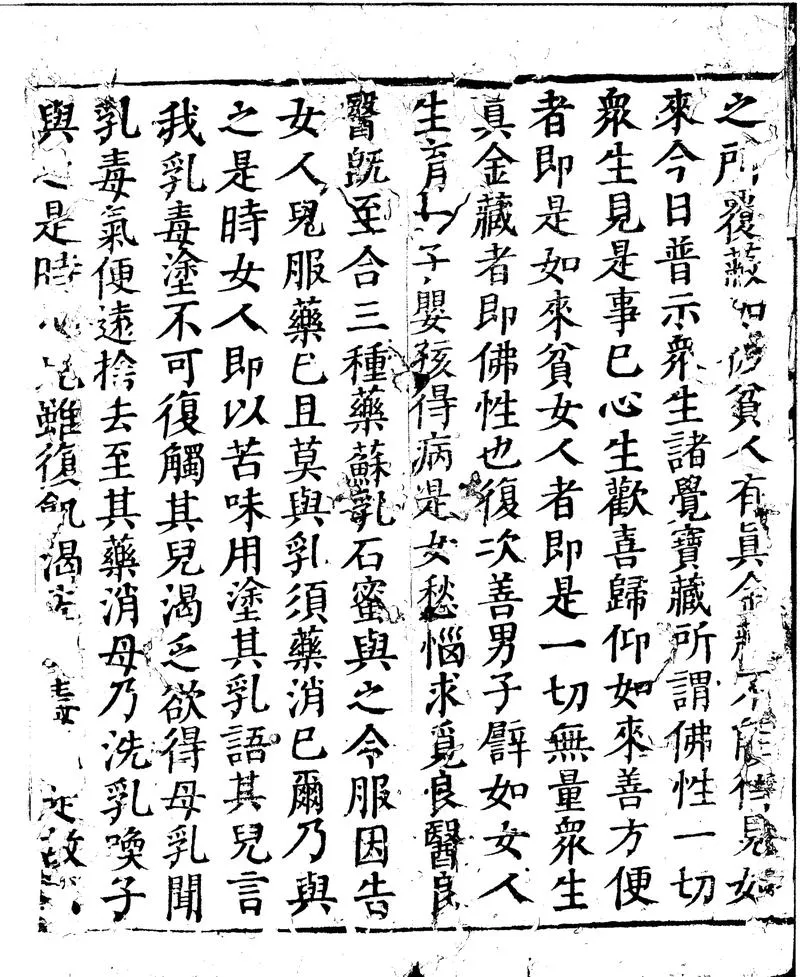 之所覆蔽如彼貧人有真金藏不能得見如
來今日普示衆生諸覺寶藏所謂佛性一切
衆生見是事已心生歡喜歸仰如來善方便
者即是如來貧女人者即是一切無量衆生
真金藏者即佛性也復次善男子譬如女人
生育一子嬰孩得病是女愁惱求覓良醫良
醫旣至合三種藥蘇乳石蜜與之令服因告
女人兒服藥已且莫與乳須藥消已爾乃與
之是時女人即以苦味用塗其乳語其兒言
我乳毒塗不可復觸其兒渴乏欲得母乳聞
乳毒氣便遠捨去至其藥消母乃洗乳喚子
與之是時小兒雖復飢渴 毒 是故